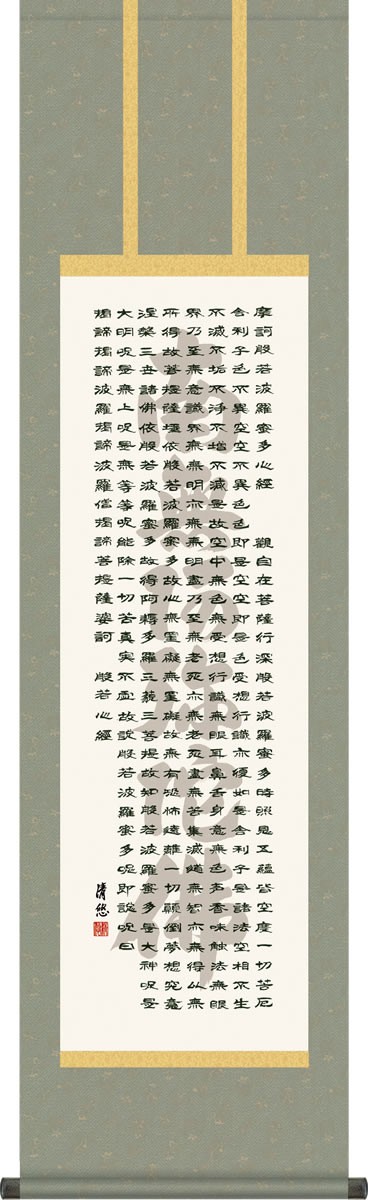 摩訶般若波羅蜜多心經　觀自在菩薩行深般若波羅蜜多時照見五蘊皆空度一切苦厄
舎利子色不異空空不異色色即是空空即是色受想行識亦復如是舎利子是諸法空相不生
不滅不垢不淨不增不減是故空中無色無受想行識無眼耳鼻舌身意無色声香味触法無眼
界乃至無意識界無無明亦無無明盡乃至無老死亦無老死盡無苦集滅道無智亦無得以無
所得故菩提薩埵依般若波羅蜜多故心無罣礙無罣礙故無有恐怖遠離一切顛倒夢想究竟
涅槃三世諸佛依般若波羅蜜多故得阿耨多羅三藐三菩提故知般若波羅蜜多是大神呪是
大明呪是無上呪是無等等呪能除一切苦真実不虚故說般若波羅蜜多呪即說呪曰
揭諦揭諦波羅揭諦波羅僧揭諦菩提薩婆訶　般若心經
清悠
南無阿弥陀佛